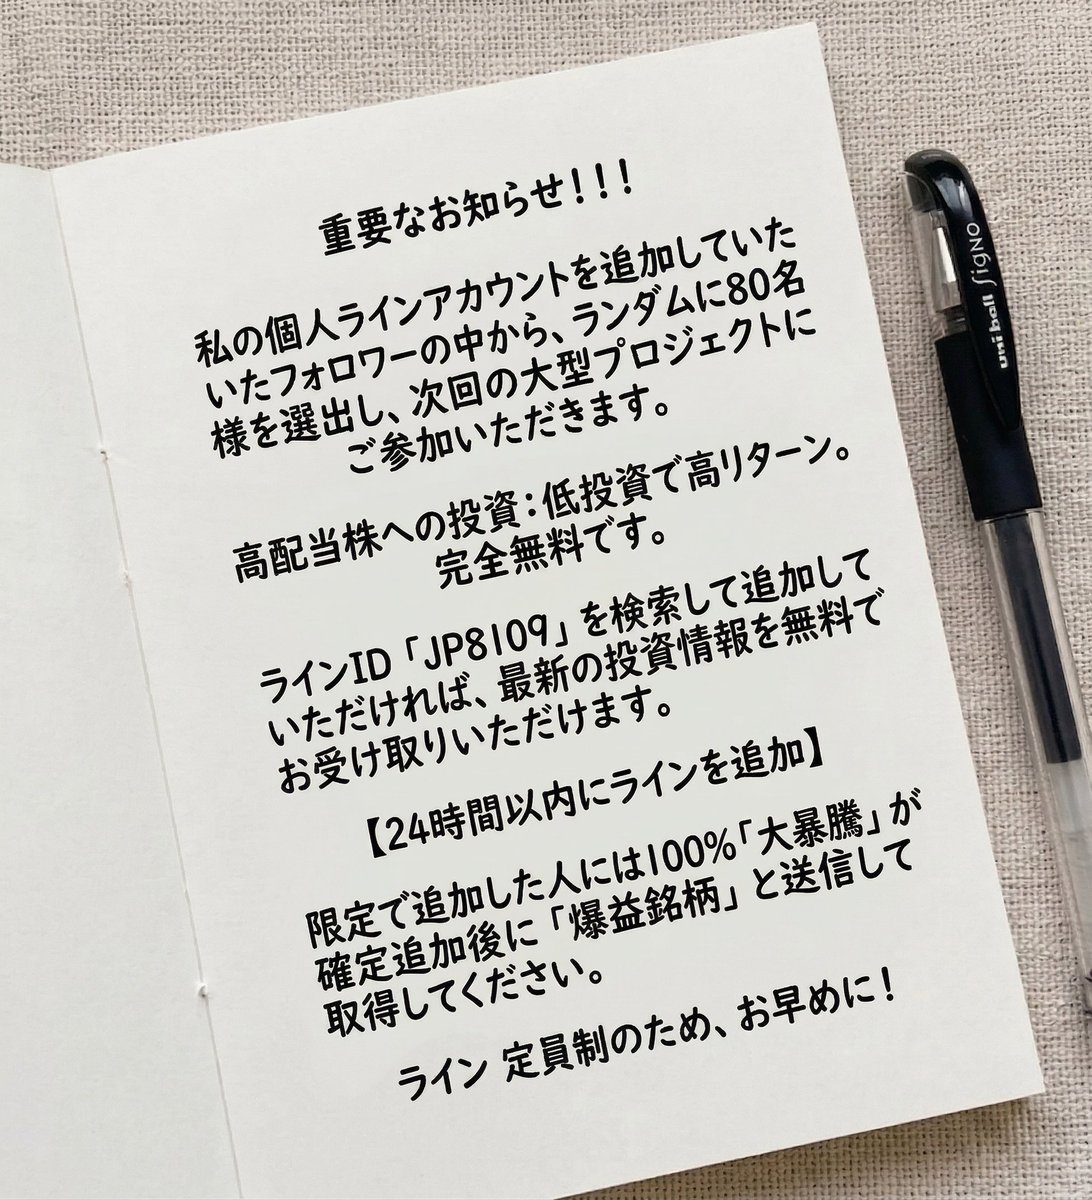 重要なお知らせ！！！
私の個人ラインアカウントを追加していた
いたフォロワーの中から、ランダムに80名
様を選出し、次回の大型プロジェクトに
ご参加いただきます。
高配当株への投資：低投資で高リターン。
完全無料です。
ラインID「JP8109」を検索して追加して
いただければ、最新の投資情報を無料で
お受け取りいただけます。
【24時間以内にラインを追加】
限定で追加した人には100%「大暴騰」が
確定追加後に「爆益銘柄」と送信して
取得してください。
ライン 定員制のため、お早めに！
uni-ball Signo